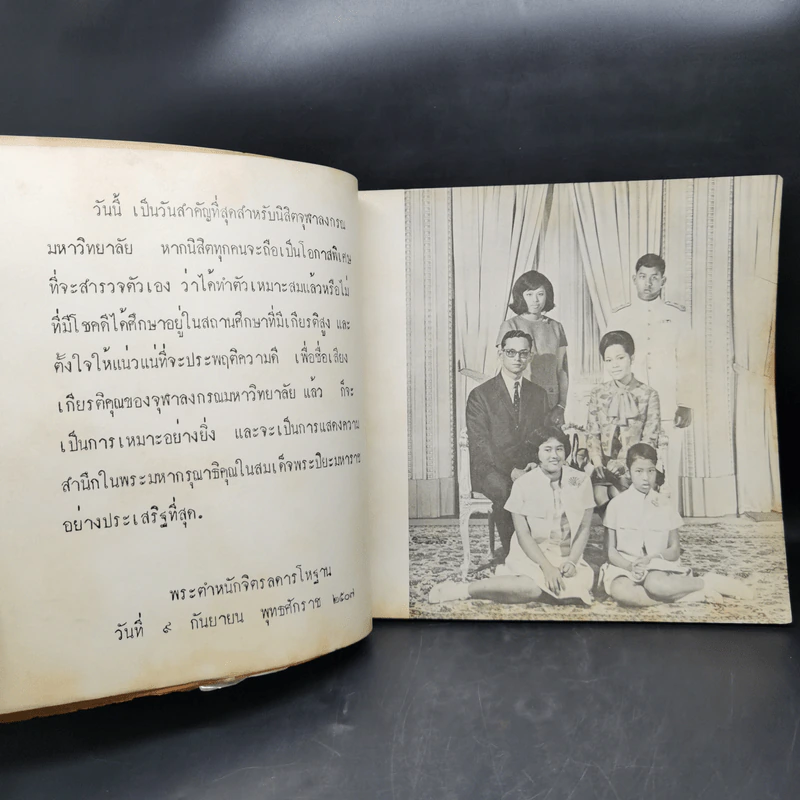 วันนี้ เป็นวันสำคัญที่สุดสำหรับนิสิตจุฬาลงกรณ
มหาวิทยาลัย หากนิสิตทุกคนจะถือเป็นโอกาสพิเศษ
ที่จะสำรวจตัวเอง ว่าได้ทำตัวเหมาะสมแล้วหรือไม่
ที่มีโชคดีได้ศึกษาอยู่ในสถานศึกษาที่มีเกียรติสูง และ
ตั้งใจให้แน่วแน่ที่จะประพฤติความดี เพื่อชื่อเสียง
เกียรติคุณของจุฬาลงกรณมหาวิทยาลัย แล้ว ก็จะ
เป็นการเหมาะอย่างยิ่ง และจะเป็นการแสดงความ
สำนึกในพระมหากรุณาธิคุณในสมเด็จพระปิยะมหาราช
อย่างประเสริฐที่สุด.
พระตำหนักจิตรลดารโหฐาน
วันที่ ๙ กันยายน พุทธศักราช ๒๕๐๗